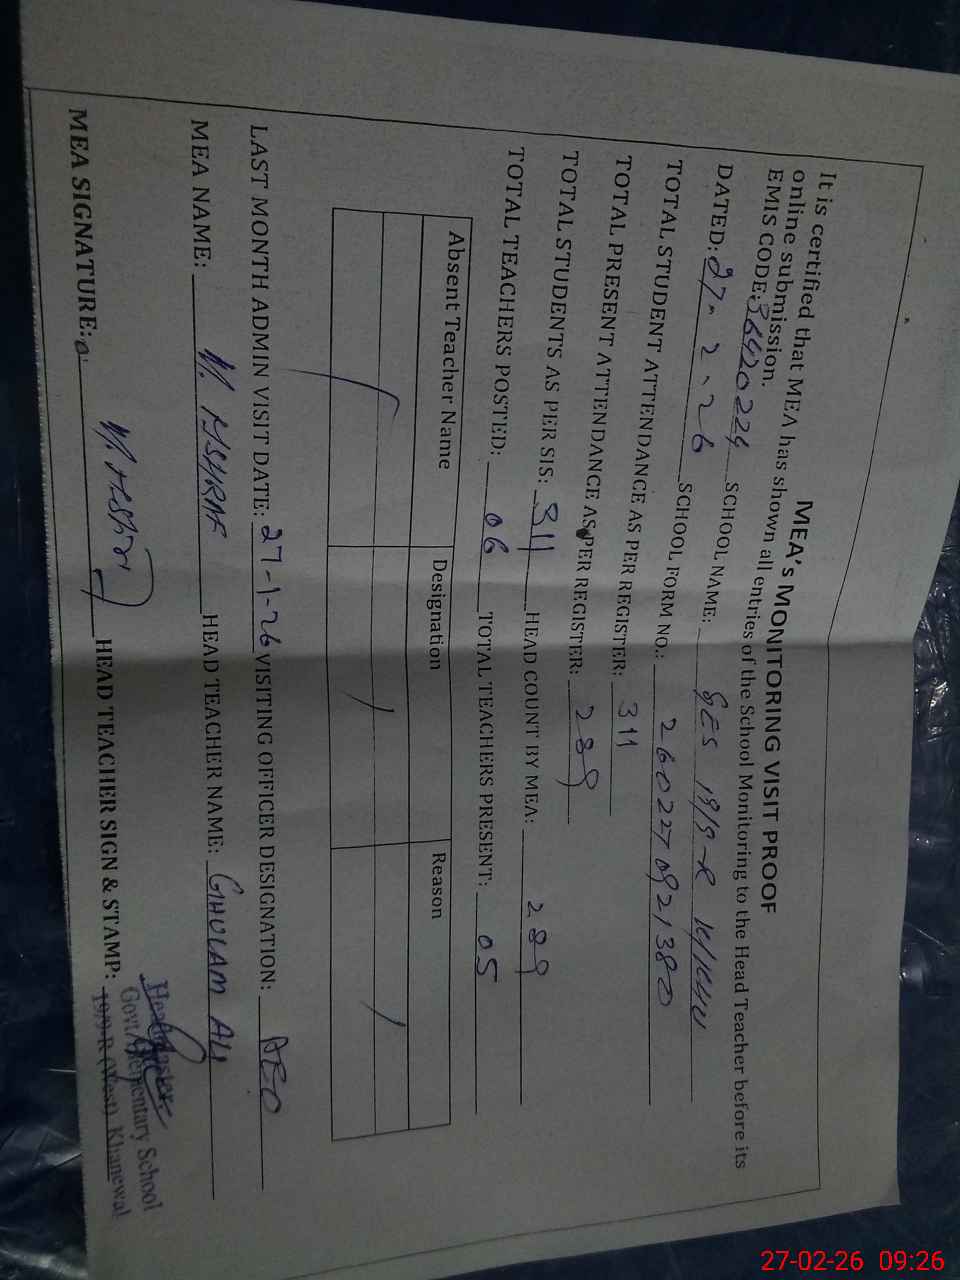 MEA's MONITORING VISIT PROOF
It is certified that MEA has shown all entries of the School Monitoring to the Head Teacher before its
online submission.
EMIS CODE: 36420224 SCHOOL NAME: GES 19/9-R
DATED: 27-2-26 SCHOOL FORM NO.: 2602270921380
TOTAL STUDENT ATTENDANCE AS PER REGISTER: 311
TOTAL PRESENT ATTENDANCE AS PER REGISTER: 289
TOTAL STUDENTS AS PER SIS: 311 HEAD COUNT BY MEA: 289
TOTAL TEACHERS POSTED: 06 TOTAL TEACHERS PRESENT: 05
Absent Teacher Name Designation Reason
LAST MONTH ADMIN VISIT DATE: 27-1-26 VISITING OFFICER DESIGNATION: AEO
MEA NAME: M. ASHRAF HEAD TEACHER NAME: GHULAM ALI
MEA SIGNATURE: HEAD TEACHER SIGN & STAMP:
Headmaster
Govt. Elementary School
19/9-R (West) Khanewal
27-02-26 09:26